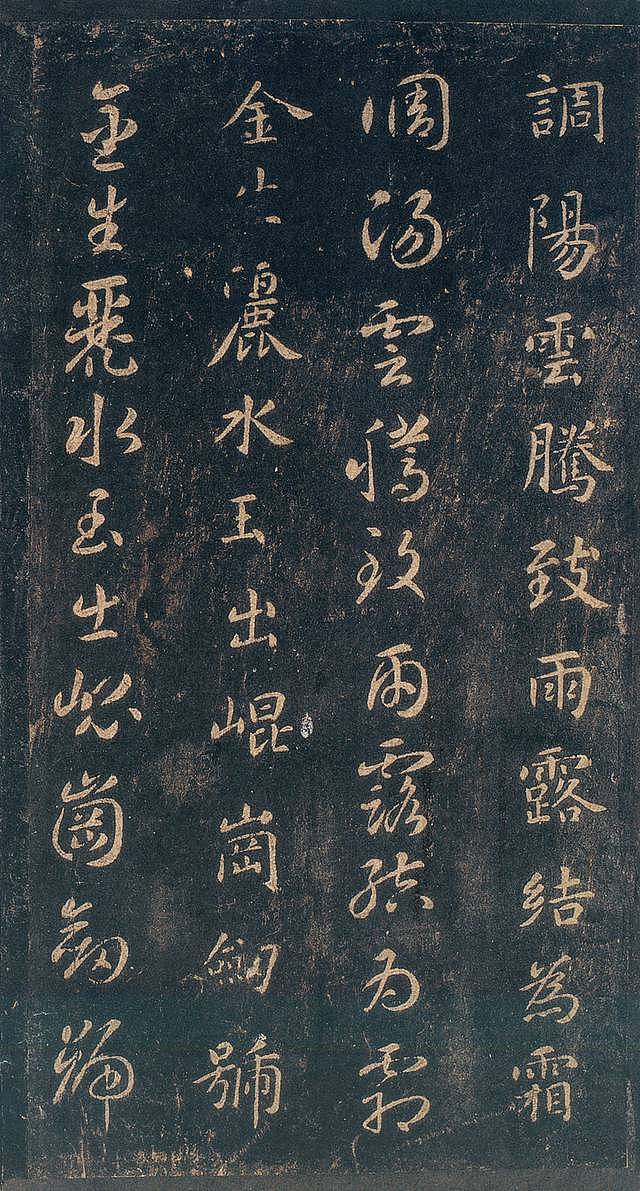 調陽雲騰致雨露結為霜
調陽雲騰致雨露結為霜
金生麗水玉出崐崗劔號
金生麗水玉出崐崗劔號